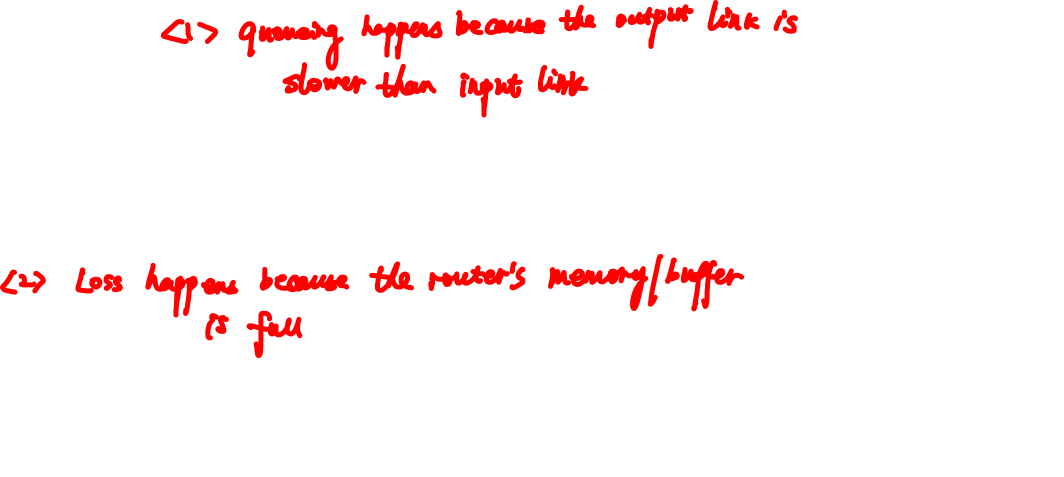 <1> queueing happens because the output link is
slower than input link
<2> Loss happens because the router's memory/buffer
is full